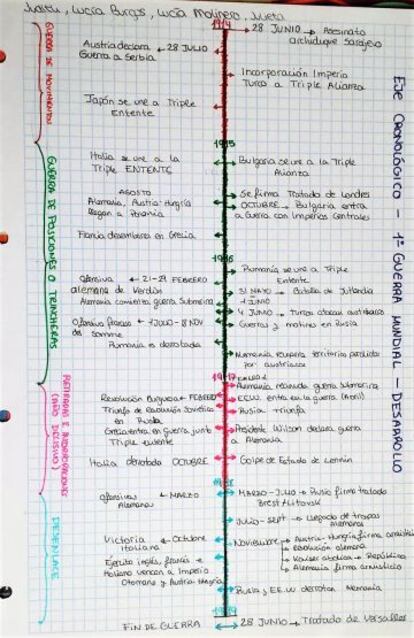 Judith, Lucía Burgos, Lucía Molinero, Julieta
EJE CRONOLÓGICO - 1ª GUERRA MUNDIAL - DESARROLLO
GUERRA DE MOVIMIENTOS
1914
28 JUNIO → Asesinato
archiduque Sarajevo
Austria declara ← 28 JULIO
Guerra a Serbia
Incorporación Imperio
Turco a Triple Alianza
Japón se une a Triple
Entente
GUERRA DE POSICIONES O TRINCHERAS
1915
Italia se une a la
Triple ENTENTE
Bulgaria se une a la Triple
Alianza
AGOSTO
Alemania, Austria-Hungría
llegan a
Se firma Tratado de Londres
OCTUBRE → Bulgaria entra
a Guerra con Imperios Centrales
desembarca en Grecia
1916
Rumania se une a Triple
Entente
Ofensiva ← 21-29 FEBRERO
alemana de Verdún
31 MAYO → Batalla de Jutlandia
1 JUNIO
Alemania comienza guerra Submarina
4 JUNIO → Turcos atacan
Ofensiva ← 1 JULIO - 18 NOV
del Somme
Guerras y motines en Rusia
Rumania es derrotada
recupera territorios perdidos
por austriacos
(AÑO DECISIVO)
1917
Alemania reanuda guerra submarina
Revolución Burguesa ← FEBRERO
EEUU. entra en la guerra (Abril)
Triunfo de Revolución Soviética
en Rusia
Rusia triunfa
Grecia entra en guerra junto
Triple entente
Presidente Wilson declara guerra
a Alemania
Italia derrotada OCTUBRE
Golpe de Estado de Lennin
DESENLACE
1918
Ofensivas ← MARZO
Alemanas
MARZO - JULIO → Rusia firma tratado
Brest Litovsk
JULIO - SEPT → Llegada de tropas
Alemanas
Victoria ← Octubre
Italiana
Noviembre → Austria-Hungría firma armisticio
→ Revolución alemana
→ Kaiser abdica → República
→ Alemania firma armisticio
Ejército inglés, francés e
italiano vencen a Imperio
Otomano y Austria-Hungría
y EE.UU derrotan Alemania
1919
FIN DE GUERRA
28 JUNIO → Tratado de Versalles